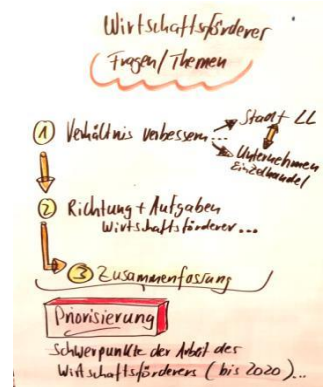 Wirtschaftsförderer
Fragen/Themen
① Verhältnis verbessern...
Stadt LL
Unternehmen
Einzelhandel
② Richtung + Aufgaben
Wirtschaftsförderer...
③ Zusammenfassung
Priorisierung
Schwerpunkte der Arbeit des
Wirtschaftsförderers (bis 2020)...